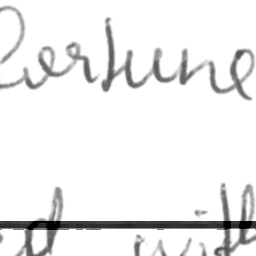 fortune
ed with